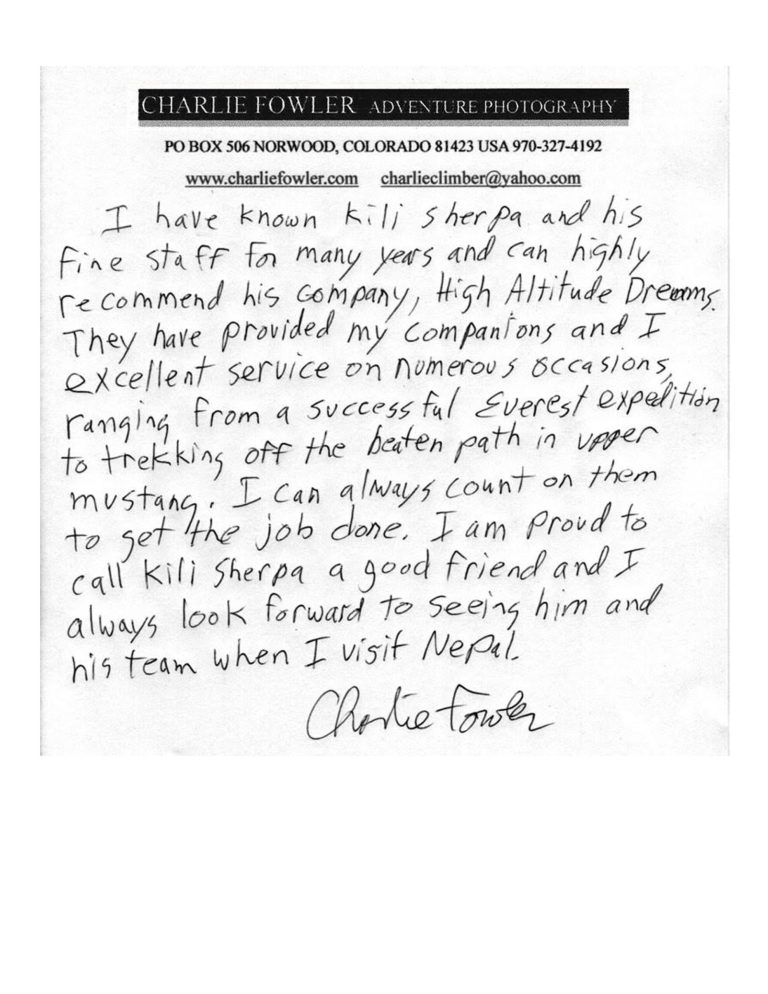 CHARLIE FOWLER ADVENTURE PHOTOGRAPHY
PO BOX 506 NORWOOD, COLORADO 81423 USA 970-327-4192
www.charliefowler.com charlieclimber@yahoo.com
I have known Kili Sherpa and his
fine staff for many years and can highly
recommend his company, High Altitude Dreams.
They have provided my companions and I
excellent service on numerous occasions,
ranging from a successful Everest expedition
to trekking off the beaten path in upper
mustang. I can always count on them
to get the job done. I am proud to
call Kili Sherpa a good friend and I
always look forward to seeing him and
his team when I visit Nepal.
Charlie Fowler